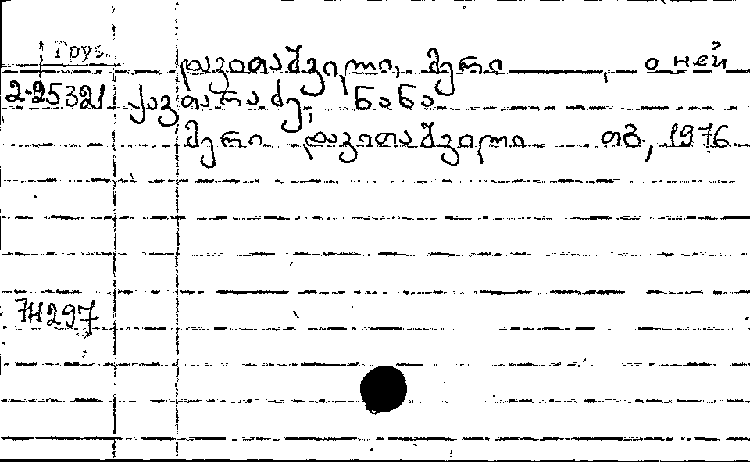 Груз. დავითაშვილი, მერი о ней
2-25321 ქავთარაძე, ნანა
მერი დავითაშვილი თბ, 1976
74297